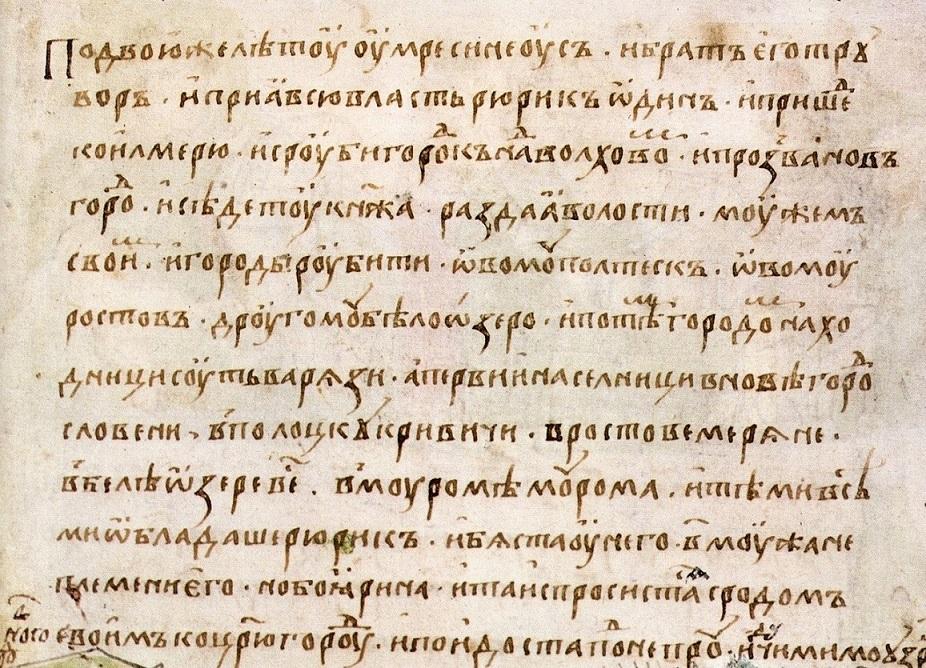 Подвоюжелѣтоу оумресинеоусъ · ибратъ єготрꙋ
воръ · иприꙗвсювластьрюрикъ ѡдинъ · ипришеⷣ
коилмерю · исроубигороⷣкънаⷣволховоⷨ · ипрозваиновъ
гороⷣ · исѣдетоукнѧжа · раздаꙗволости · моужемъ
своиⷨ · игородыроубити · ѡвомоуполтескъ · ѡвомоу
ростовъ · дроугомоубѣлоѡзеро · ипотѣⷨгородоⷨ нахо
дницисоутьварязи · апервиинаселници вновѣгороⷣ
словени · вполоцкꙋкривичи · вростовемеряне ·
вбелѣѡзеревеⷭ · вмоуромѣ моурома · итѣмивсѣ
миѡбладашерюрикъ · ибястаоунего · в҃моужане
племениєго · нобоꙗрина · итаиспросистаⷭсродомъ
своимъкоцр҃югороⷣу · ипоидостапоⷣнепроу · иⷣчимимоузрⷭ